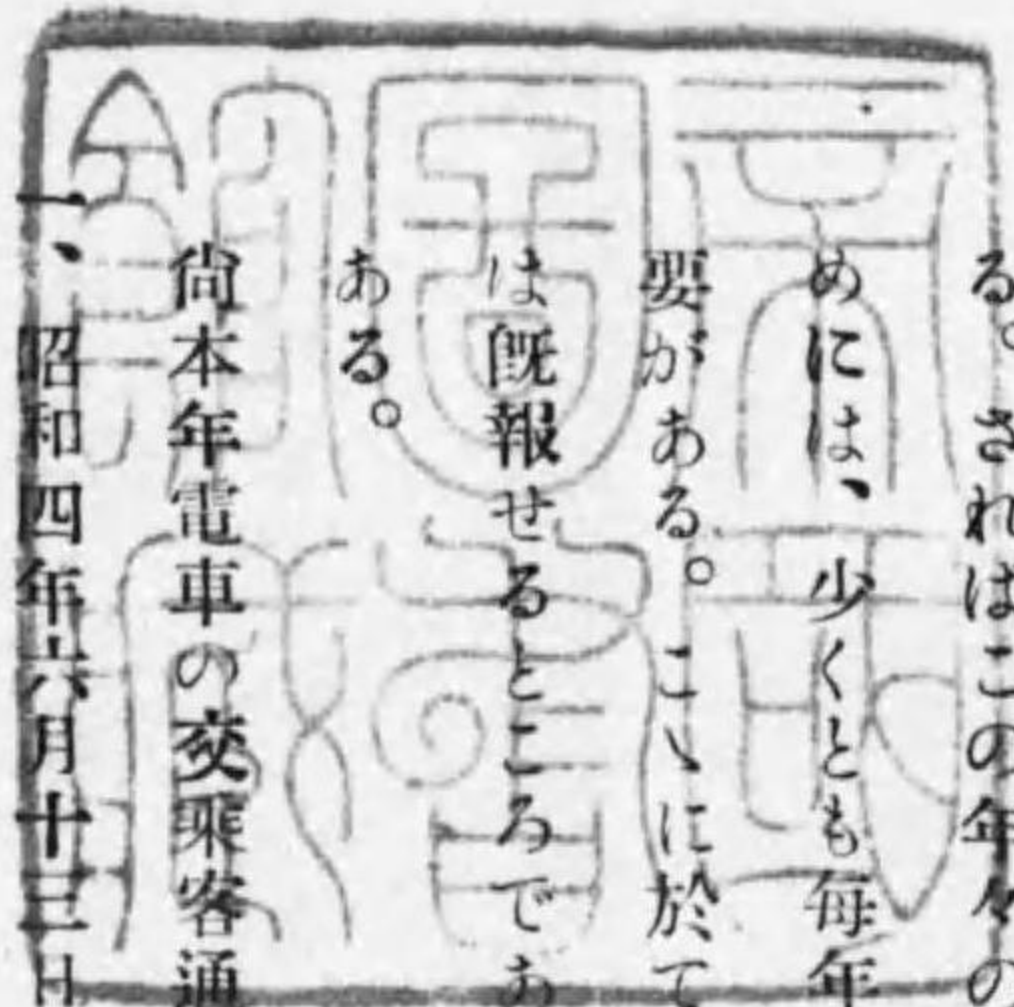 る。されはこの年々の
めには、少くとも毎年
要がある。こゝに於て
は既報せるところであ
ある。
尙本年電車の交乘客通
一、昭和四年六月十三日